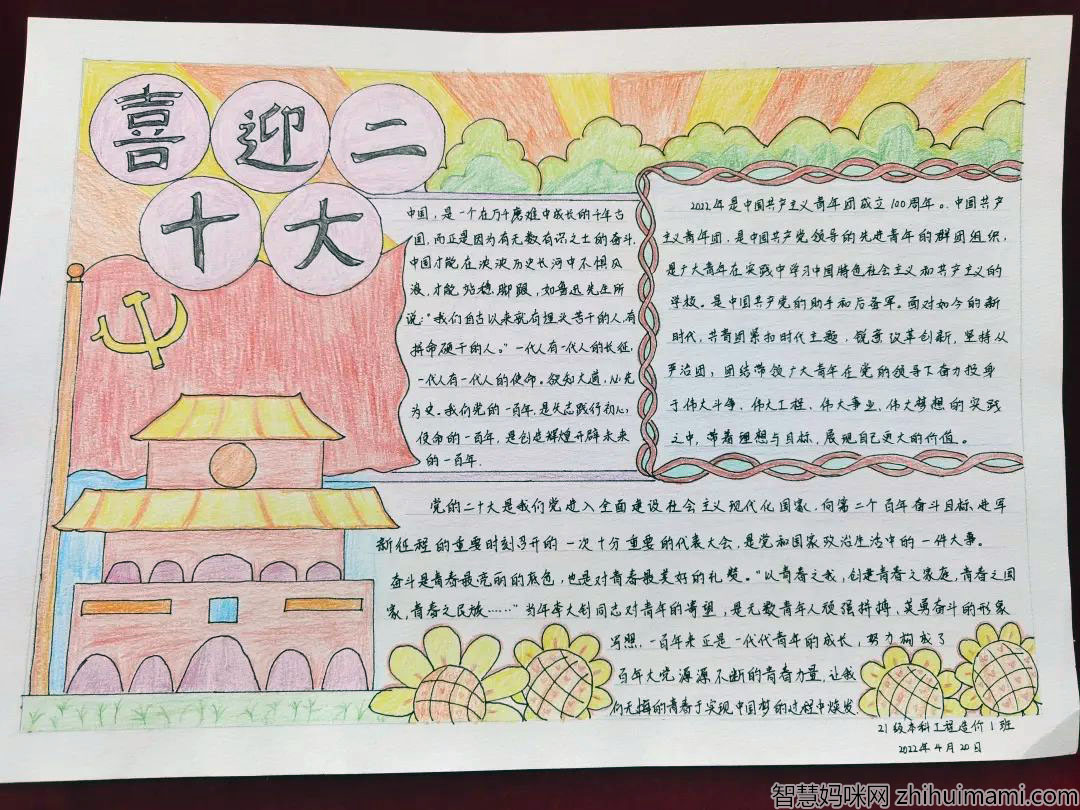 喜迎二
十大
中国，是一个在万千磨难中成长的千年古
国，而正是因为有无数有识之士的奋斗，
中国才能在泱泱历史长河中不惧风
浪，才能站稳脚跟，如鲁迅先生所
说：“我们自古以来就有埋头苦干的人，有
拼命硬干的人。”一代人有一代人的长征，
一代人有一代人的使命。欲知大道，必先
为史。我们党的一百年，是矢志践行初心，
使命的一百年，是创造辉煌开辟未来
的一百年．
2022年是中国共产主义青年团成立100周年。．中国共产
主义青年团，是中国共产党领导的先进青年的群团组织，
是广大青年在实践中学习中国特色社会主义和共产主义的
学校。是中国共产党的助手和后备军。面对如今的新
时代，共青团紧扣时代主题，锐意改革创新，坚持从
严治团，团结带领广大青年在党的领导下奋力投身
于伟大斗争、伟大工程、伟大事业、伟大梦想的实践
之中，带着理想与目标，展现自己更大的价值。
党的二十大是我们党进入全面建设社会主义现代化国家，向第二个百年奋斗目标进军
新征程的重要时刻召开的一次十分重要的代表大会，是党和国家政治生活中的一件大事。
奋斗是青春最亮丽的底色，也是对青春最美好的礼赞。“以青春之我，创建青春之家庭，青春之国
家，青春之民族……”当年李大钊同志对青年的寄望，是无数青年人顽强拼搏，英勇奋斗的形象
写照，一百年来正是一代代青年的成长，努力构成了
百年大党源源不断的青春力量，让我
们无悔的青春于实现中国梦的过程中焕发．
21级本科工程造价1班
2022年4月20日
智慧妈咪网 zhihuimami.com